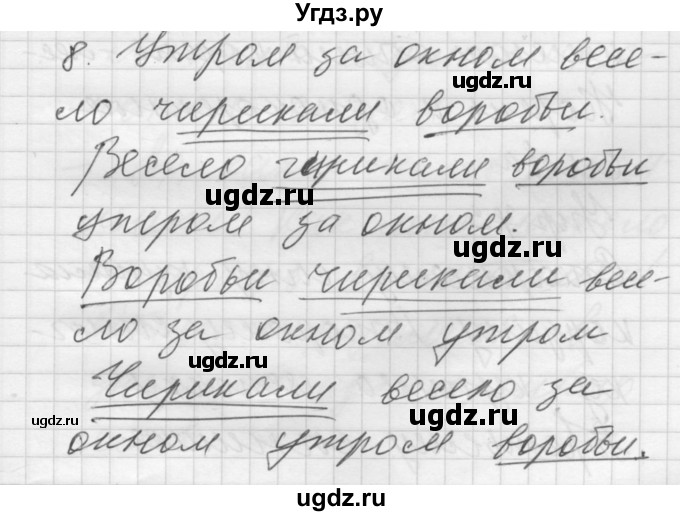 Угдз.ру
8. Утром за окном весе-
ло чирикали воробьи.
ugdz.ru
Весело чирикали воробьи
ugdz.ru
утром за окном.
ugdz.ru
Воробьи чирикали весе-
ло за окном утром
ugdz.ru
Чирикали весело за
ugdz.ru
ugdz.ru
окном утром воробьи.
ugdz.ru
ugdz.ru